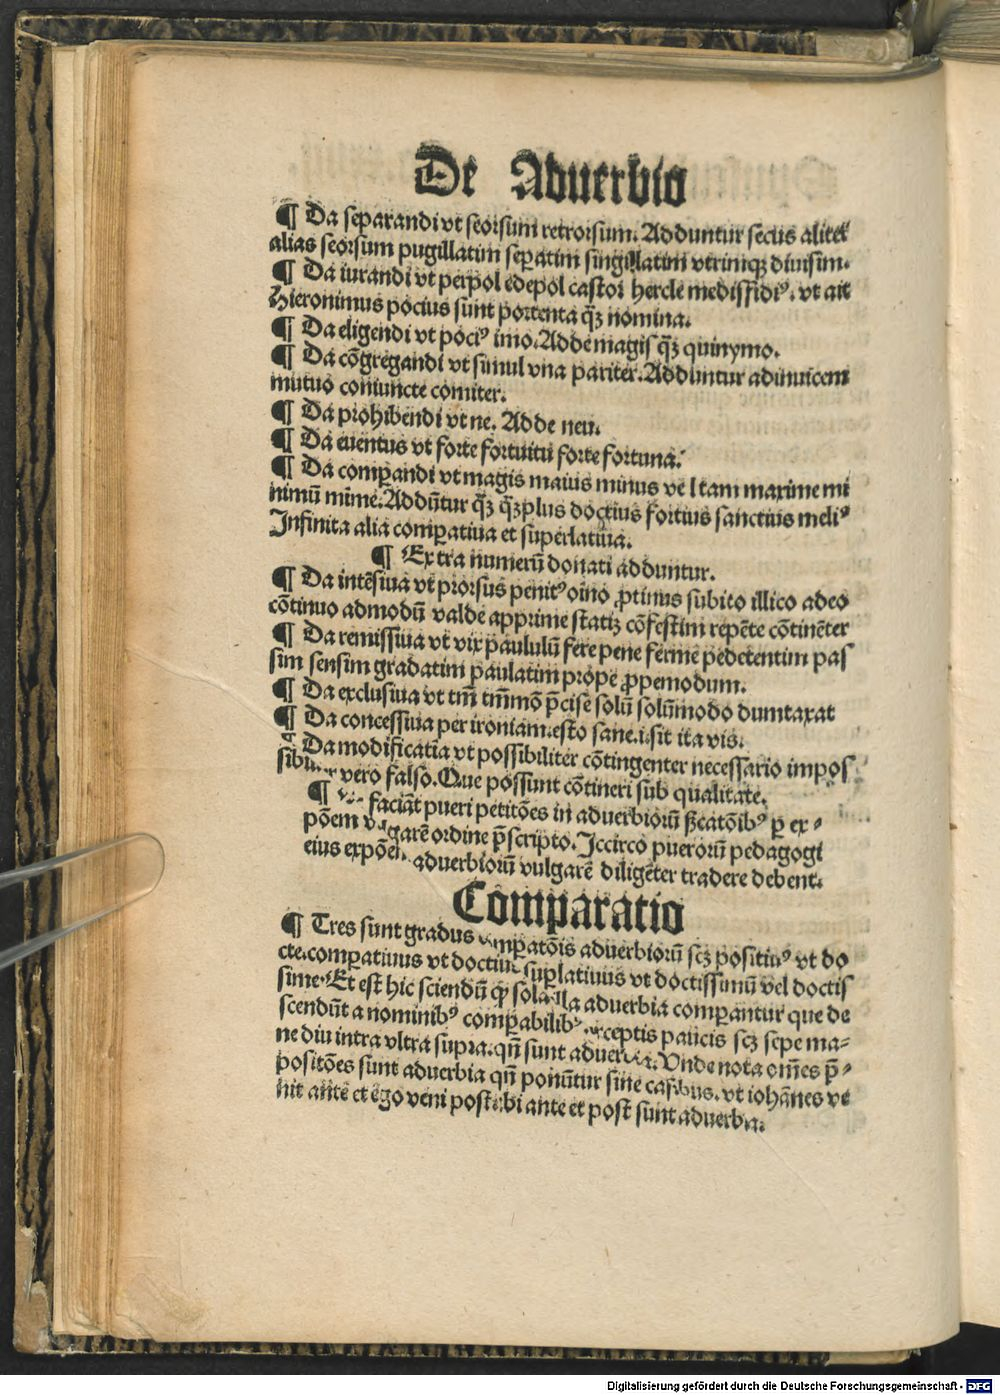 De Aduerbio
¶ Da separandi vt seorsum retrorsum. Adduntur secus aliter
alias seorsum pugillatim seꝑatim singillatim vtrimqꝫ diuisim.
¶ Da iurandi vt perpol edepol castor hercle medisfidiꝰ. vt ait
Hieronimus pocius sunt portenta q̄ꝫ nomina.
¶ Da eligendi vt pociꝰ imo. Adde magis q̄ꝫ quinymo.
¶ Da cōgregandi vt simul vna pariter. Adduntur adinuicem
mutuo coniuncte comiter.
¶ Da prohibendi vt ne. Adde neu.
¶ Da euentus vt forte fortuitu forte fortuna.
¶ Da comꝑandi vt magis maius minus ve l tam maxime mi
nimū mīme. Addūtur q̄ꝫ q̄ꝫplus doctius fortius sanctius meliꝰ
Infinita alia comꝑatiua et suꝑlatiua.
¶ Extra numerū donati adduntur.
¶ Da intēsiua vt prorsus penitꝰ oīno ꝓtinus subito illico adeo
cōtinuo admodū valde apprime statiꝫ cōfestim repēte cōtinēter
¶ Da remissiua vt vix paululū fere pene ferme pedetentim pas
sim sensim gradatim paulatim prope ꝓpemodum.
¶ Da exclusiua vt tm̄ tm̄mō p̄cise solū solūmodo dumtaxat
¶ Da concessiua per ironiam. esto sane .i. sit ita vis.
¶ Da modificatīa vt possibiliter cōtingenter necessario impos
vero falso. Que possunt cōtineri sub qualitate.
¶ faciāt pueri petitōes in aduerbiorū ßcatōibꝰ ꝑ ex⸗
pōem ordine p̄scripto. Iccirco puerorū pedagogi
eius aduerbiorū vulgarē diligēter tradere debent.
Comparatio
¶ Tres sunt gradus aduerbiorū scꝫ positiuꝰ vt do
cte. comꝑatiuus vt doctius suꝑlatiuus vt doctissimū vel doctis
sime. Et est hic sciendū ꝙ sola illa aduerbia comꝑantur que de
scendūt a nominibꝰ comꝑabilibꝰ exceptis paucis scꝫ sepe ma⸗
ne diu intra vltra supra. qn̄ sunt aduerbia. Vnde nota om̄es p̄⸗
positōes sunt aduerbia qn̄ ponūtur sine casibus. vt iohānes ve
nit ante et ego veni post. vbi ante et post sunt aduerbia.
Digitalisierung gefördert durch die Deutsche Forschungsgemeinschaft - DFG